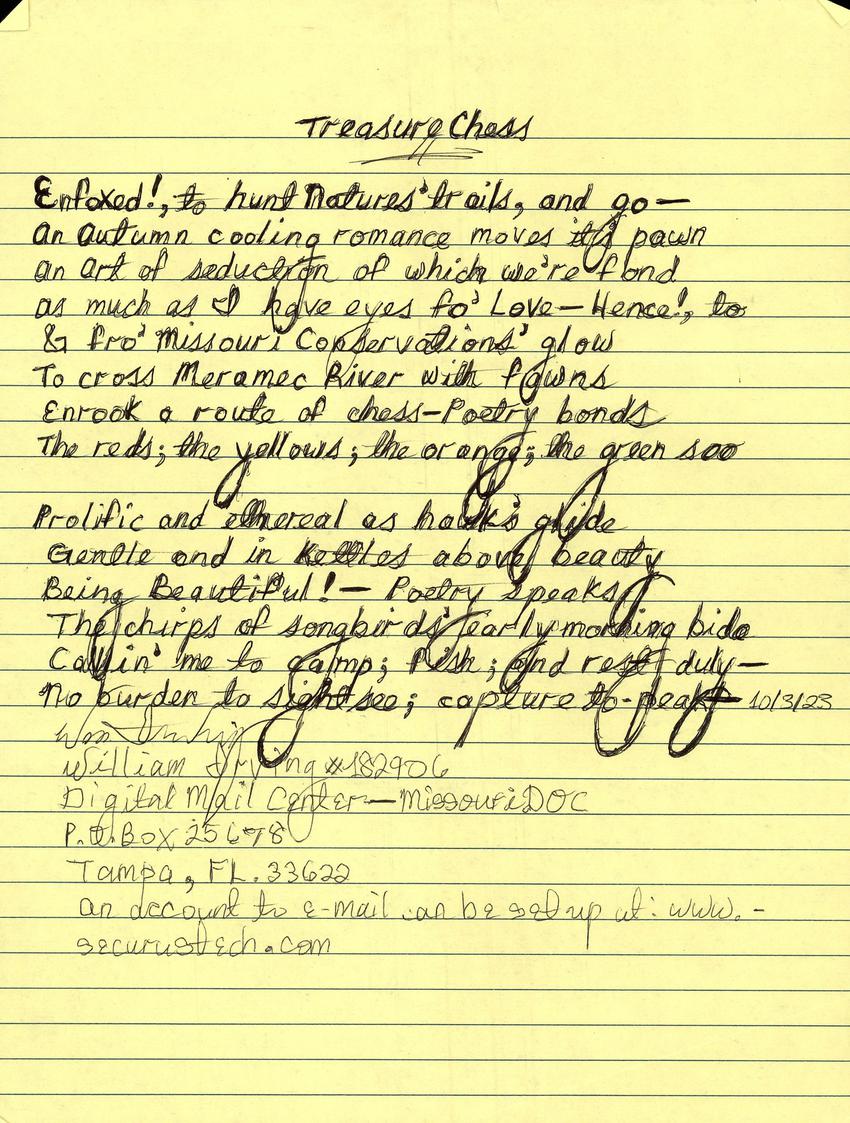 Treasure Chess
Enfoxed!, to hunt Natures' trails, and go—
an autumn cooling romance moves it's pawn
an art of seduction of which we're fond
as much as I have eyes fo' Love—Hence!, to
& fro' Missouri Conservations' glow
To cross Meramec River with fawns
Enrook a route of chess-Poetry bonds
The reds; the yellows; the orange; the green soo
Prolific and ethereal as hawk's glide
Gentle and in Kettles above beauty
Being Beautiful!— Poetry speaks
The chirps of songbirds' early morning bide
Callin' me to camp; fish; and rest duty—
No burden to sightsee; capture to-peak— 10/3/23
William Irving #182906
Digital Mail Center—Missouri DOC
P.O. Box 25678
Tampa, FL. 33622
an account to e-mail can be set up at: www.-
securustech.com